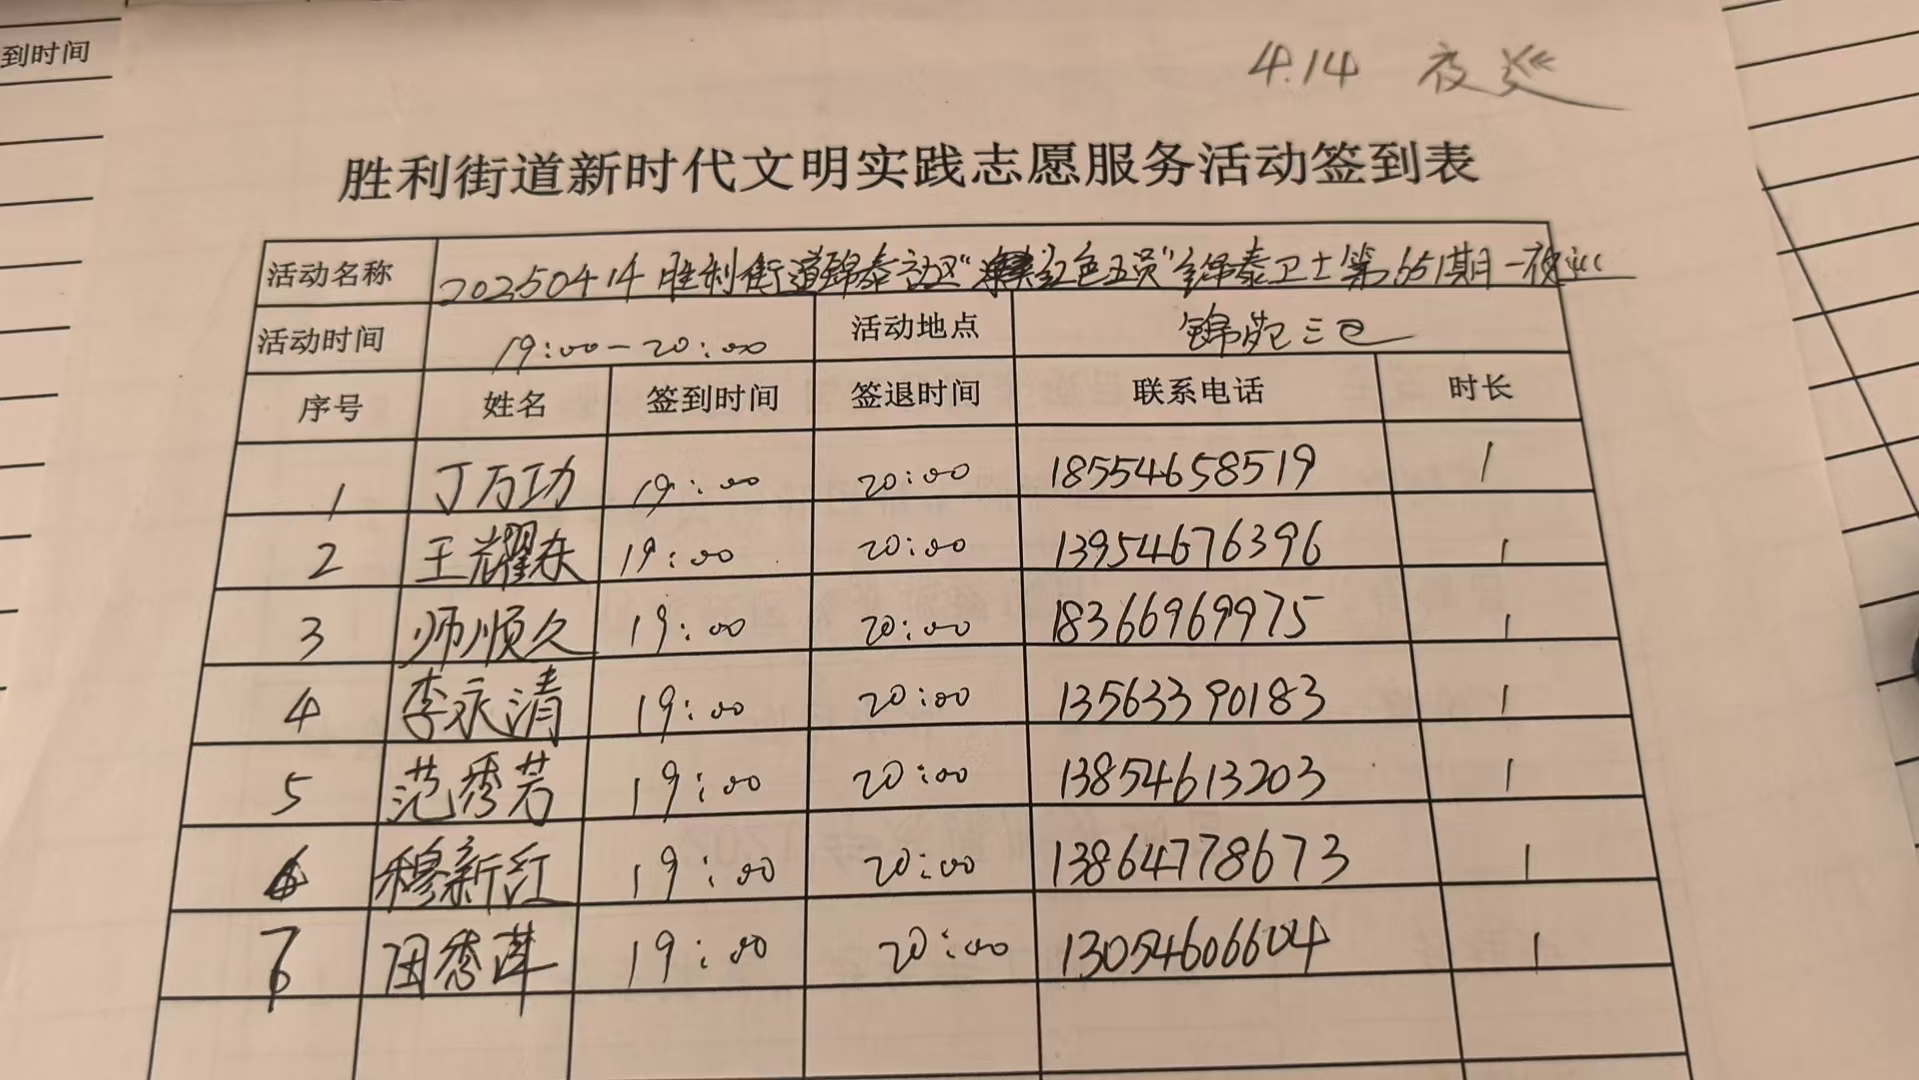 到时间
4.14 夜巡
胜利街道新时代文明实践志愿服务活动签到表
活动名称 20250414胜利街道锦泰社区"红色五员"锦泰卫士第651期-夜巡
活动时间 19:00-20:00 活动地点 锦苑三区
序号 姓名 签到时间 签退时间 联系电话 时长
1 丁万功 19:00 20:00 18554658519 1
2 王耀东 19:00 20:00 13954676396 1
3 师顺久 19:00 20:00 18366969975 1
4 李永清 19:00 20:00 13563390183 1
5 范秀芳 19:00 20:00 13854613203 1
6 穆新红 19:00 20:00 13864778673 1
7 田秀莲 19:00 20:00 13054606604 1